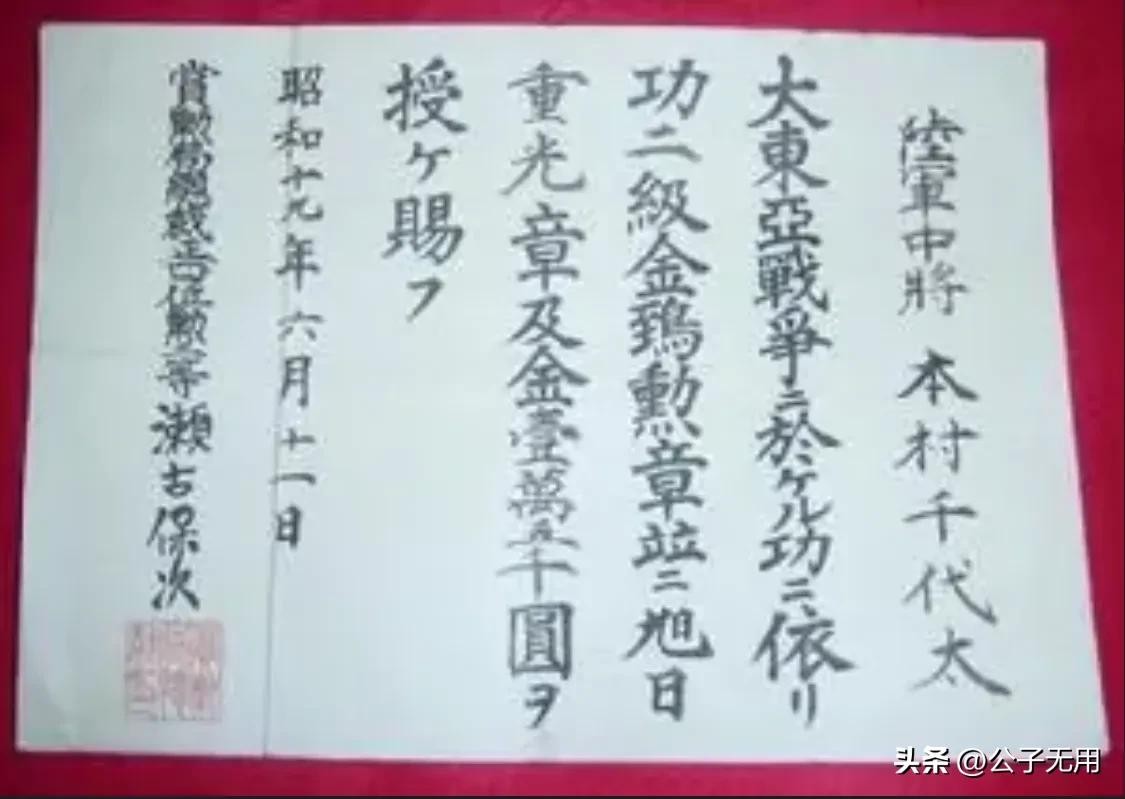 陸軍中將 本村千代太
大東亞戰爭ニ於ケル功ニ依リ
功二級金鵄勳章竝ニ旭日
重光章及金壹萬五千圓ヲ
授ケ賜フ
昭和十九年六月十一日
賞勳局總裁 位勳 等瀬古保次
头条 @公子无用